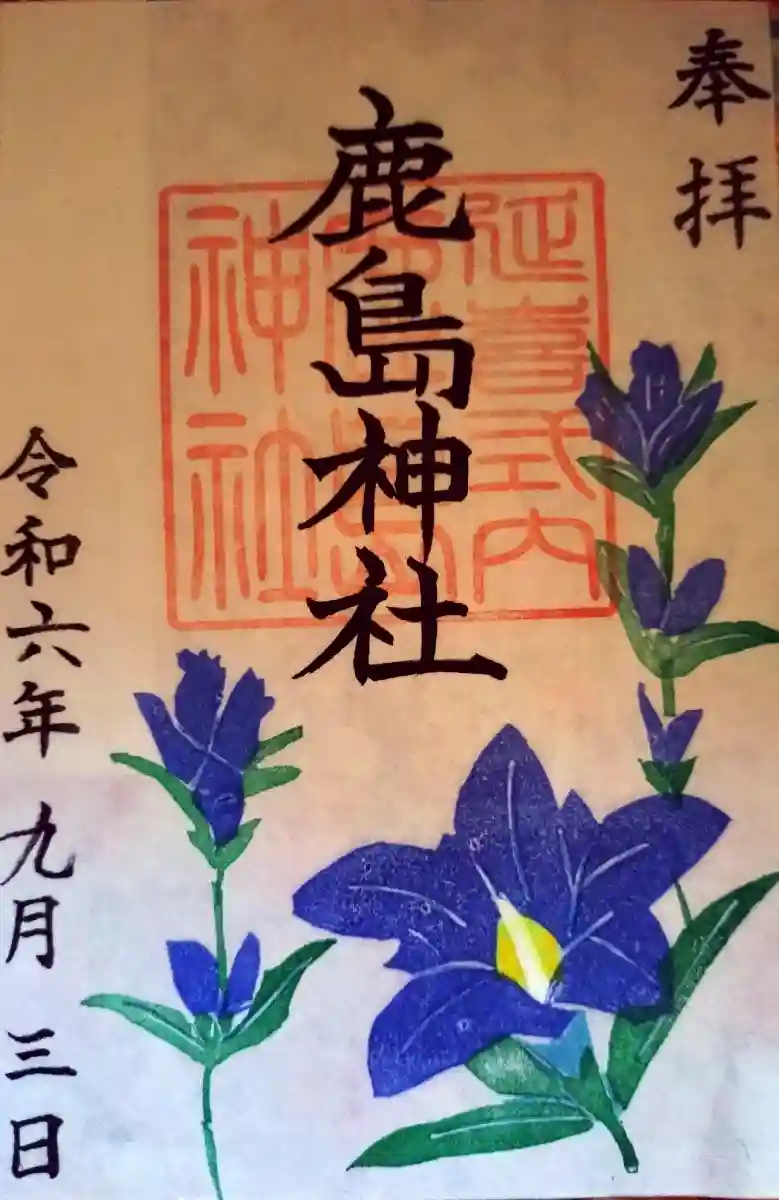 奉拝
鹿島神社
延喜式内
鹿島
神社
令和六年九月三日